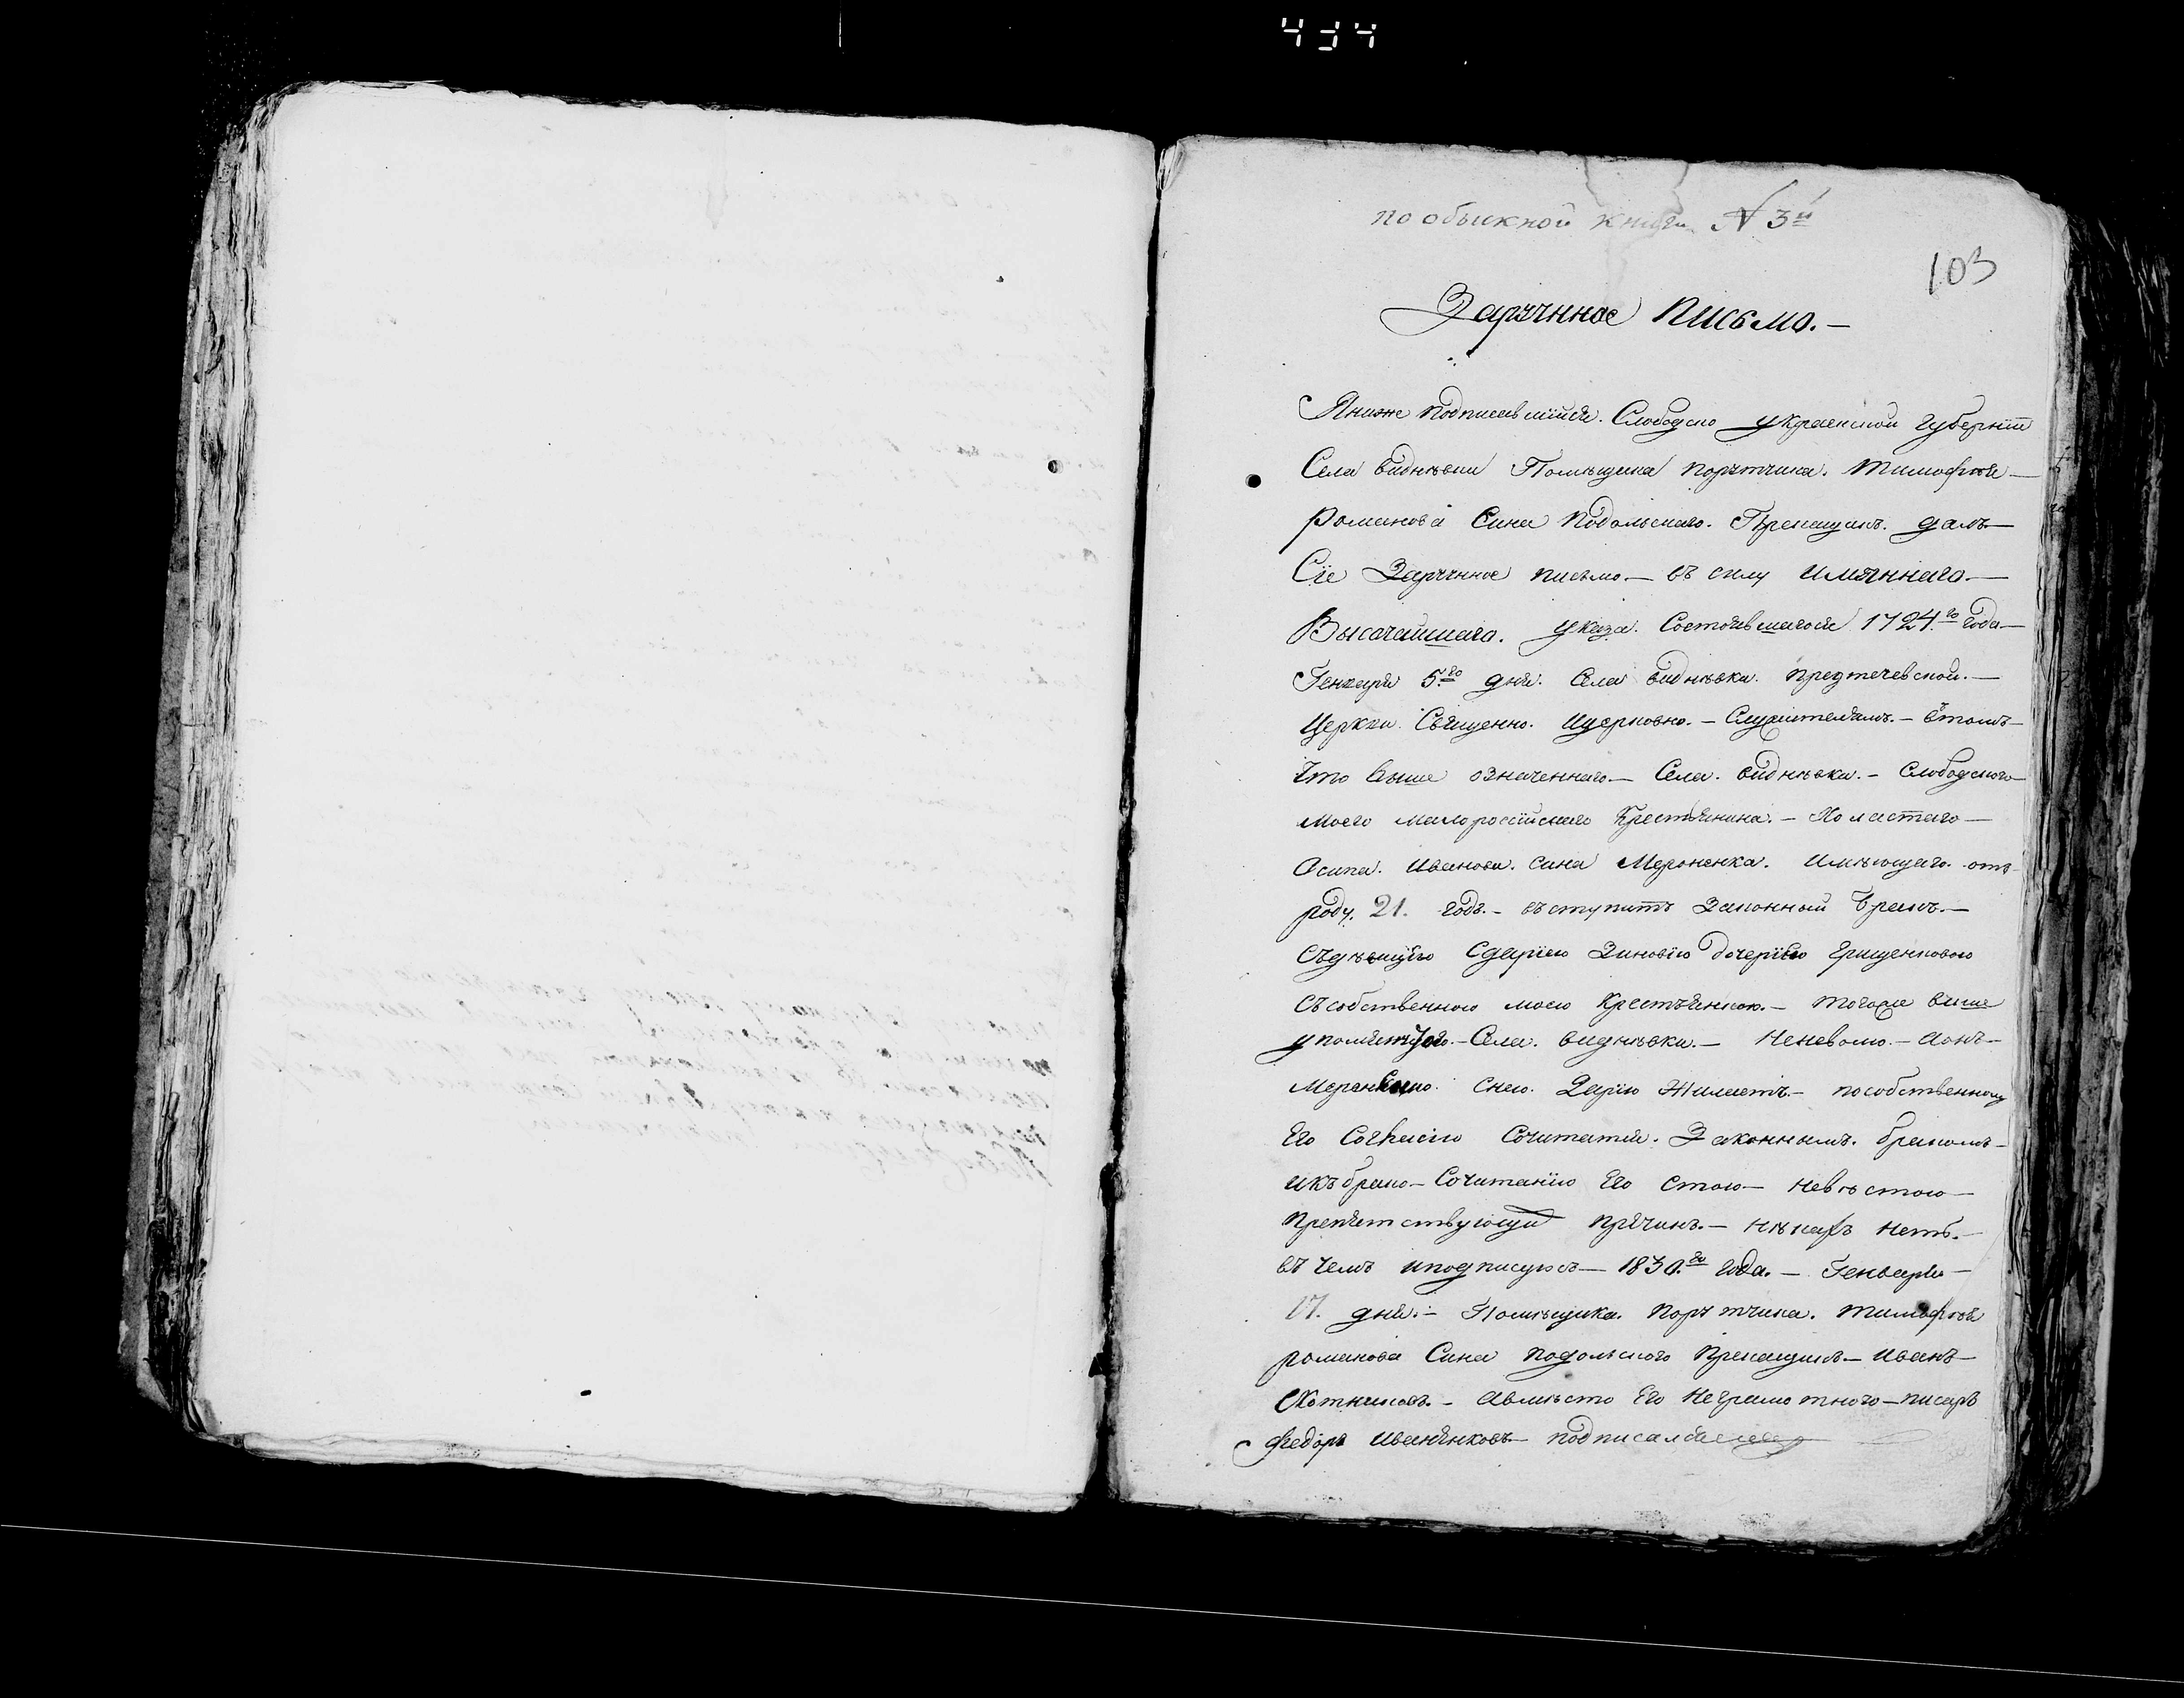 434
по обыкной книги № 3й
103
Заручное Письмо.—
Я ниже подписавшийся. Слободско украенской губернїи
Села Виднѣвки Помѣщика порутчика. Тимофѣя—
Романова Сина Подольскаго. Прикащикъ. далъ—
Сїе Заручное письмо.— въ силу имяннаго.—
Высочайшаго. указа. Состоявшагося 1724.го года—
Генваря 5.го дня. Села виднѣвки. предтечевской.—
Церкви. Священно. ицерковно.— Служителямъ.— вТомъ—
Что выше означеннаго.— Села. виднѣвки.— Слободского—
моего малороссїйскаго Крестьянина.— Холастаго—
Осипа. Иванова. сина Мероненка. Имѣющаго. отъ
роду. 21. годъ.— въступитъ Законный бракъ.—
съдѣвицею Сдарїею Зиновїю дочерїею Грищенковою
съсобственною моею Крестьянкою.— тогоже више
упомянутого.— Села. виднѣвки.— Неневолю.— аонъ—
снею. Дарїю Жилаетъ.— пособственному
Его Согласїю Сочитатся. Законнымъ. бракомъ—
икъ брако— Сочитанїю Его Стою— невѣстою—
препятствующи причинъ.— нѣкахъ нетъ.—
въ чемъ иподписуюсь— 1830.го года.— Генваря—
17. дня.— Помѣщика. порутчика. тимофѣя
романова Сина подольского прикащикъ— иванъ—
Охотниковъ.— авмѣсто Его неграмотного— писарь
Федоръ Иванѣнковъ— подписался